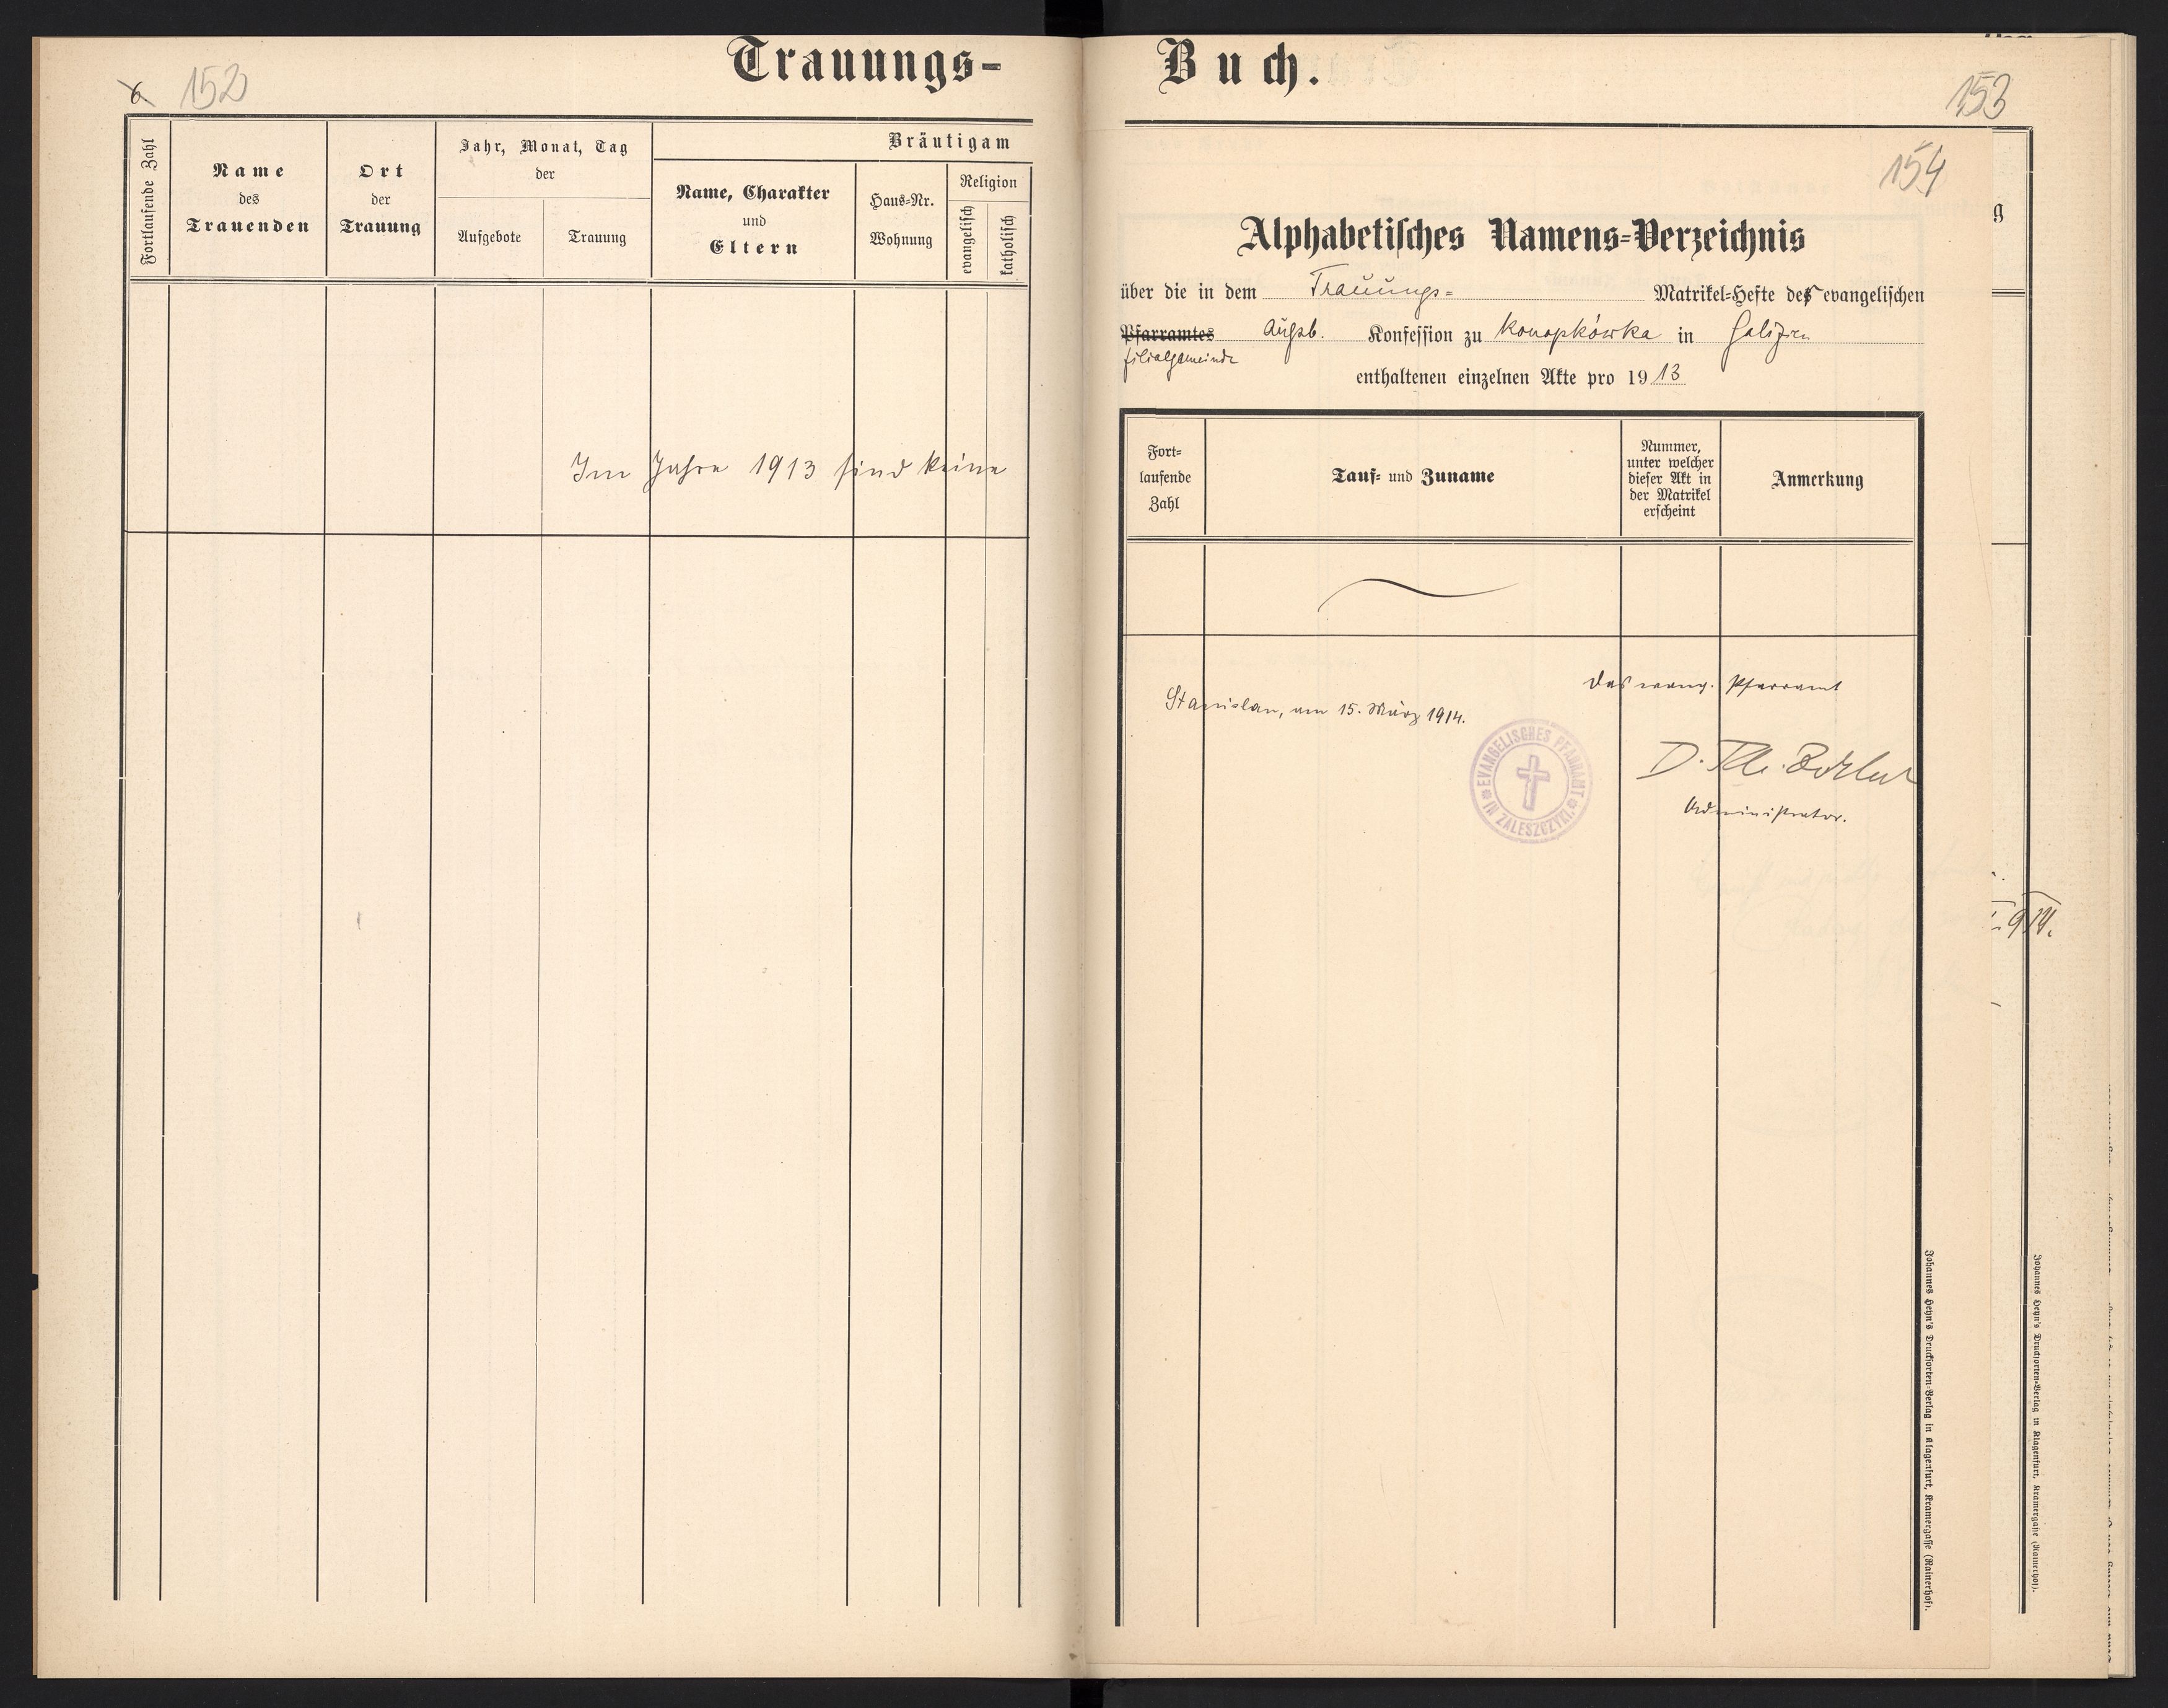 Trauungs-
6 152
Fortlaufende Zahl
Name
des
Trauenden
Ort
der
Trauung
Jahr, Monat, Tag
der
Aufgebote
Trauung
Bräutigam
Name, Charakter
und
Eltern
Haus-Nr.
Wohnung
Religion
evangelisch
katholisch
Im Jahre 1913 sind keine
Buch.
153
154
g
Alphabetisches Namens-Verzeichnis
über die in dem Trauungs- Matrikel-Hefte der evangelischen
Pfarramtes Augsb. Konfession zu Konopkówka in Galizien
Filialgemeinde
enthaltenen einzelnen Akte pro 1913
Fort-
laufende
Zahl
Tauf- und Zuname
Nummer,
unter welcher
dieser Akt in
der Matrikel
erscheint
Anmerkung
Das evang. Pfarramt
Stanislau, am 15. März 1914.
EVANGELISCHES PFARRAMT
IN ZALESZCZYKI
D. Th.
Administrator.
Johannes Heyn's Drucksorten-Verlag in Klagenfurt, Kramergasse (Rainerhof).
Johannes Heyn's Drucksorten-Verlag in Klagenfurt, Kramergasse (Rainerhof).